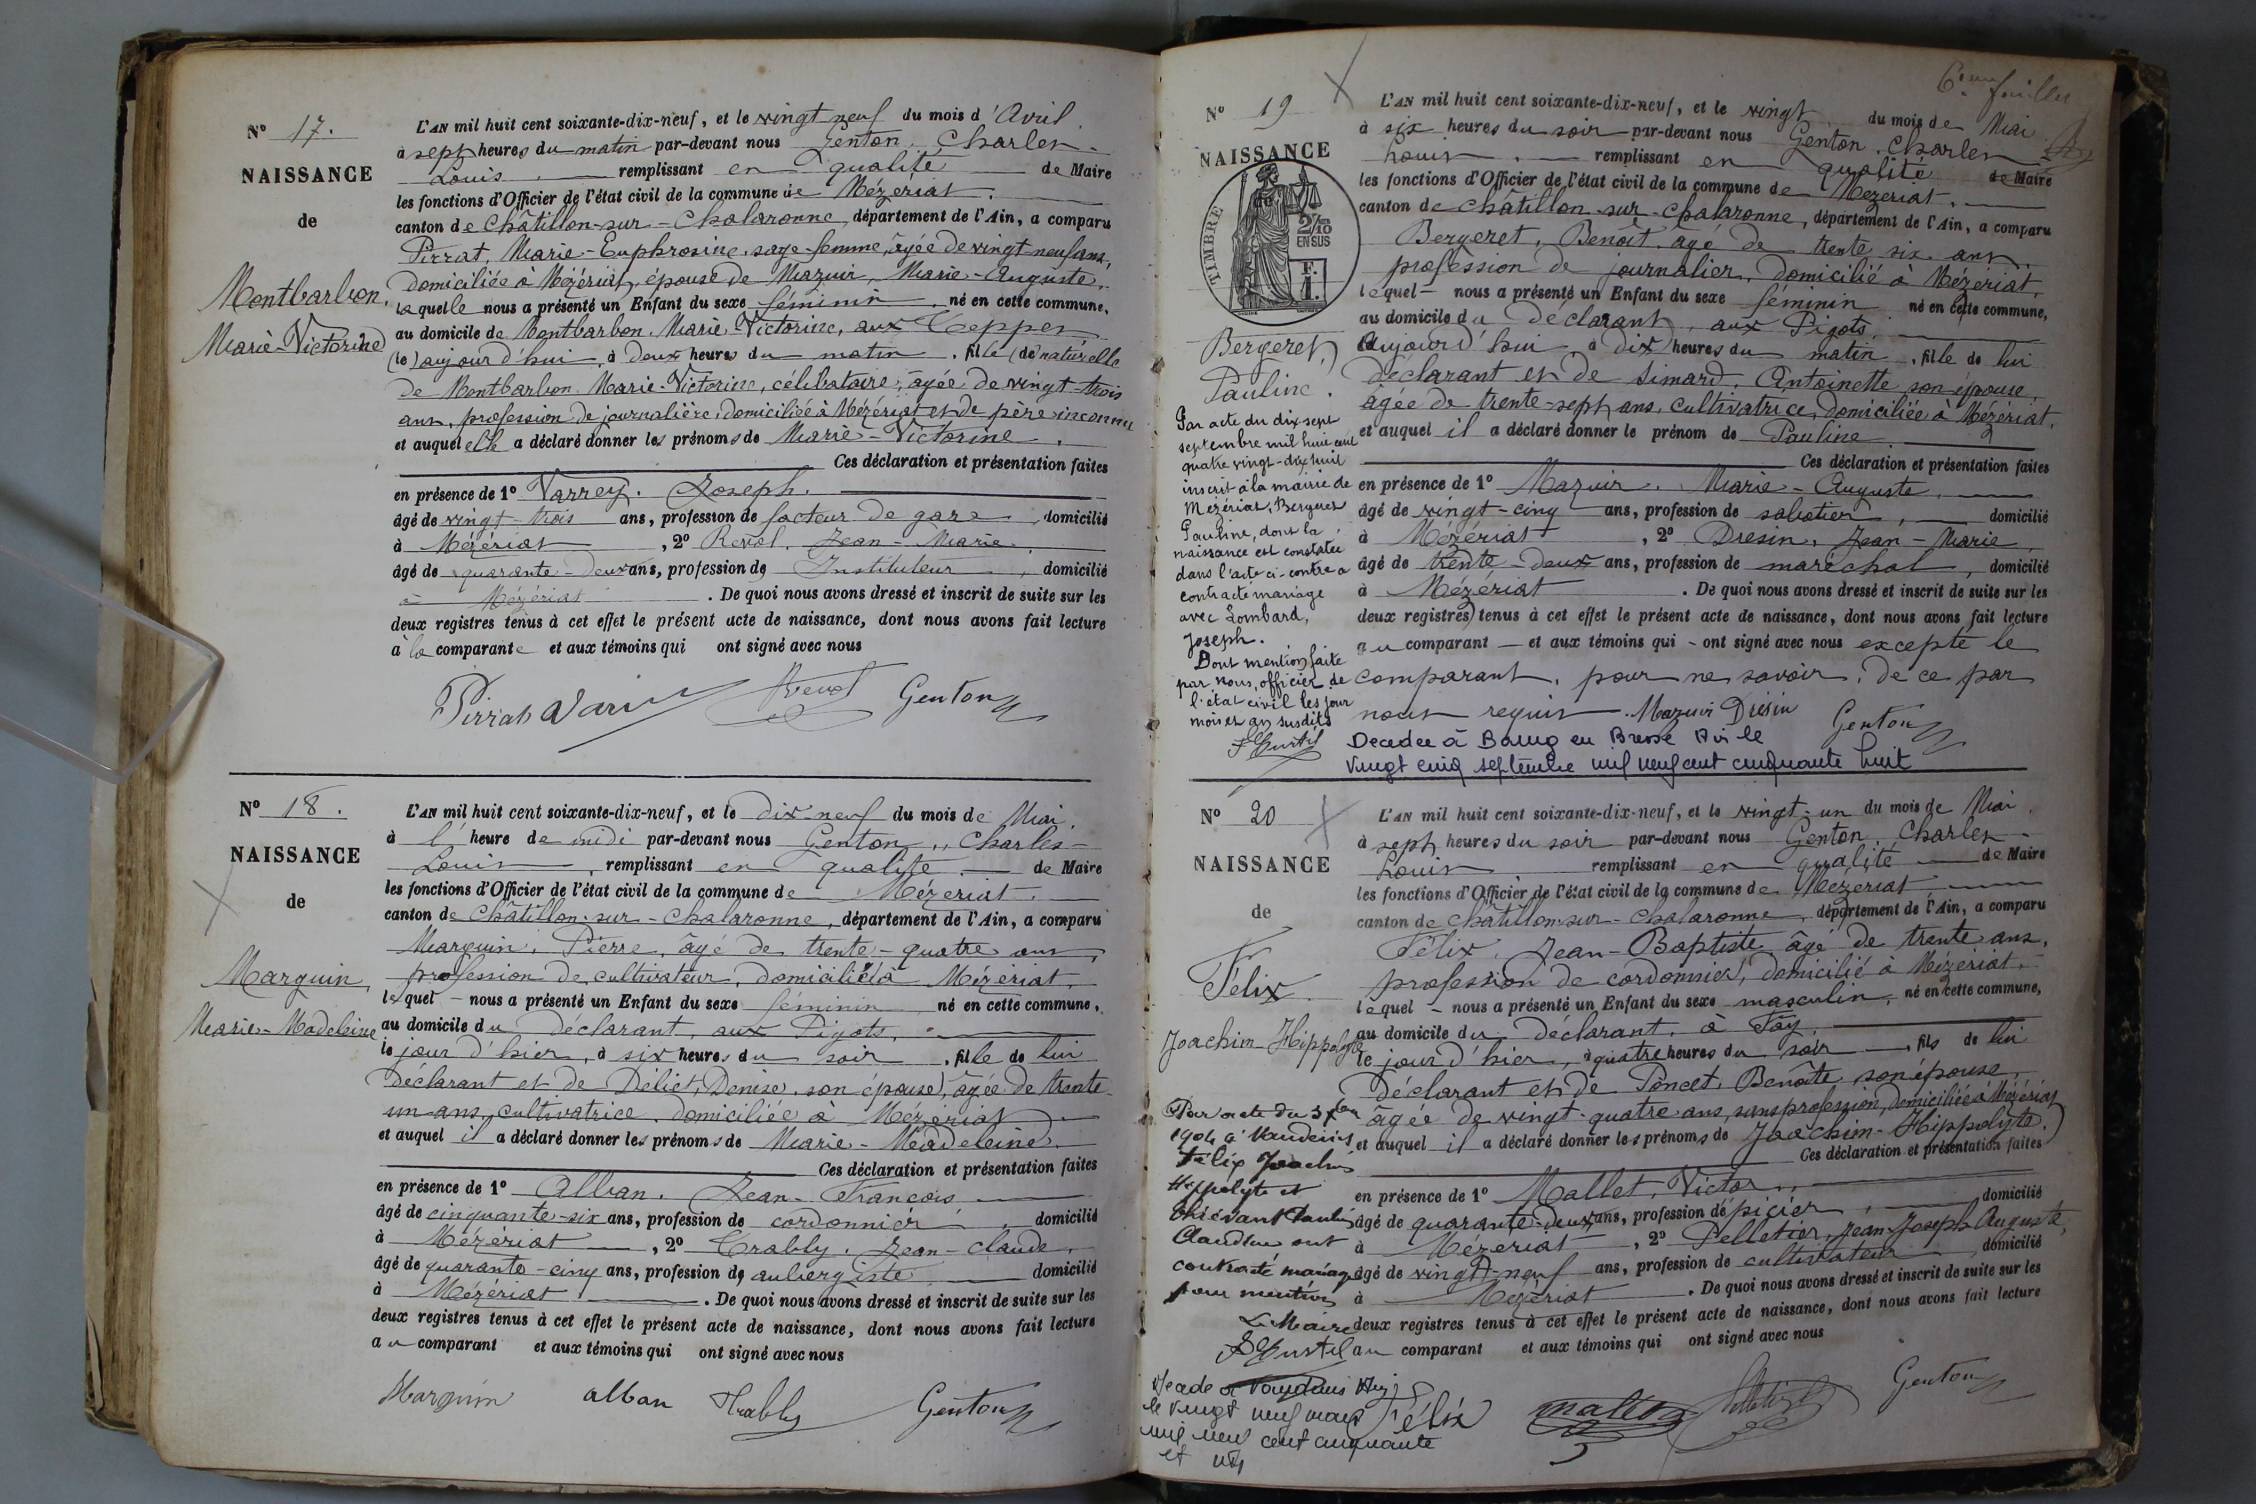 N° 17.
NAISSANCE
de
Montbarbon,
Marie-Victorine
L'AN mil huit cent soixante-dix-neuf, et le vingt neuf du mois d'Avril
à sept heures du matin par-devant nous Genton, Charles-
Louis remplissant en qualité de Maire
les fonctions d'Officier de l'état civil de la commune de Mézériat.
canton de Châtillon-sur-Chalaronne, département de l'Ain, a comparu
Pirrat, Marie-Euphrosine, sage-femme, âgée de vingt neuf ans,
domiciliée à Mézériat, épouse de Mazuir, Marie-Auguste,
laquelle nous a présenté un Enfant du sexe féminin, né en cette commune,
au domicile de Montbarbon, Marie-Victorine, aux Teppes
(le) aujourd'hui, à deux heures du matin, fille (de) naturelle
de Montbarbon Marie-Victorine, célibataire, âgée de vingt-trois
ans, profession de journalière, domiciliée à Mézériat et de père inconnu
et auquel elle a déclaré donner les prénoms de Marie-Victorine.
Ces déclaration et présentation faites
en présence de 1° Varrey, Joseph.
âgé de vingt-trois ans, profession de facteur de gare, domicilié
à Mézériat, 2° Revol, Jean-Marie
âgé de quarante-deux ans, profession de Instituteur, domicilié
à Mézériat. De quoi nous avons dressé et inscrit de suite sur les
deux registres tenus à cet effet le présent acte de naissance, dont nous avons fait lecture
à la comparante et aux témoins qui ont signé avec nous
Pirrat Revol Genton
N° 18.
NAISSANCE
de
Marguin,
Marie-Madeleine
L'AN mil huit cent soixante-dix-neuf, et le dix-neuf du mois de Mai,
à l'heure de midi par-devant nous Genton, Charles-
Louis, remplissant en qualité de Maire
les fonctions d'Officier de l'état civil de la commune de Mézériat.
canton de Châtillon-sur-Chalaronne, département de l'Ain, a comparu
Marguin, Pierre, âgé de trente-quatre ans,
profession de cultivateur, domicilié à Mézériat,
lequel nous a présenté un Enfant du sexe féminin né en cette commune,
au domicile du déclarant, aux Pigots,
le jour d'hier, à six heures du soir, fille de lui
déclarant et de Déliet, Denise, son épouse, âgée de trente-
un ans, cultivatrice, domiciliée à Mézériat
et auquel il a déclaré donner les prénoms de Marie-Madeleine.
Ces déclaration et présentation faites
en présence de 1° Alban, Jean-François
âgé de cinquante-six ans, profession de cordonnier, domicilié
à Mézériat, 2° Trably, Jean-Claude,
âgé de quarante-cinq ans, profession de aubergiste domicilié
à Mézériat. De quoi nous avons dressé et inscrit de suite sur les
deux registres tenus à cet effet le présent acte de naissance, dont nous avons fait lecture
au comparant et aux témoins qui ont signé avec nous
Marguin alban Trably Genton
6e feuillet
N° 19
NAISSANCE
de
TIMBRE
2/10
EN SUS
F.
1.
Bergeret,
Pauline.
Par acte du dix sept
septembre mil huit cent
quatre vingt-dix huit
inscrit à la mairie de
Mézériat, Bergeret
Pauline, dont la
naissance est constatée
dans l'acte ci-contre a
contracté mariage
avec Lombard,
Joseph.
Dont mention faite
par nous, officier de
l'état civil les jour
mois et an susdits
L'AN mil huit cent soixante-dix-neuf, et le vingt du mois de Mai
à six heures du soir par-devant nous Genton, Charles-
Louis, remplissant en qualité de Maire
les fonctions d'Officier de l'état civil de la commune de Mézériat.
canton de Châtillon-sur-Chalaronne, département de l'Ain, a comparu
Bergeret, Benoît, âgé de trente six ans,
profession de journalier, domicilié à Mézériat,
lequel nous a présenté un Enfant du sexe féminin né en cette commune,
au domicile du déclarant, aux Pigots
aujourd'hui à dix heures du matin, fille de lui
déclarant et de Simard, Antoinette son épouse,
âgée de trente-sept ans, cultivatrice, domiciliée à Mézériat,
et auquel il a déclaré donner le prénom de Pauline.
Ces déclaration et présentation faites
en présence de 1° Mazuir, Marie-Auguste,
âgé de vingt-cinq ans, profession de sabotier, domicilié
à Mézériat, 2° Diesin, Jean-Marie,
âgé de trente-deux ans, profession de maréchal, domicilié
à Mézériat. De quoi nous avons dressé et inscrit de suite sur les
deux registres tenus à cet effet le présent acte de naissance, dont nous avons fait lecture
au comparant et aux témoins qui ont signé avec nous excepté le
comparant, pour ne savoir, de ce par
nous requis. Mazuir Diésin Genton
Décédée à Bourg en Bresse Ain le
vingt cinq septembre mil neuf cent cinquante huit
N° 20
NAISSANCE
de
Félix
Joachim-Hippolyte
Par acte du 3 7bre
1904 à Vandeins
Félix Joachim
Hippolyte et
Claudine ont
contracté mariage
pour mention
Le Maire
Décédé à Vandeins Ain
le vingt neuf mars
mil neuf cent cinquante
et un
L'AN mil huit cent soixante-dix-neuf, et le vingt-un du mois de Mai
à sept heures du soir par-devant nous Genton, Charles-
Louis remplissant en qualité de Maire
les fonctions d'Officier de l'état civil de la commune de Mézériat
canton de Châtillon-sur-Chalaronne, département de l'Ain, a comparu
Félix, Jean-Baptiste âgé de trente ans,
profession de cordonnier, domicilié à Mézériat,
lequel nous a présenté un Enfant du sexe masculin, né en cette commune,
au domicile du déclarant, à Fay,
le jour d'hier, à quatre heures du soir, fils de lui
déclarant et de Poncet, Benoîte, son épouse,
âgée de vingt-quatre ans, sans profession, domiciliée à Mézériat
et auquel il a déclaré donner les prénoms de Joachim-Hippolyte.
Ces déclaration et présentation faites
en présence de 1° Mallet, Victor,
âgé de quarante-deux ans, profession d'épicier, domicilié
à Mézériat, 2° Pelletier, Jean-Joseph Auguste,
âgé de vingt-neuf ans, profession de cultivateur domicilié
à Mézériat. De quoi nous avons dressé et inscrit de suite sur les
deux registres tenus à cet effet le présent acte de naissance, dont nous avons fait lecture
au comparant et aux témoins qui ont signé avec nous
Félix mallet Pelletier Genton